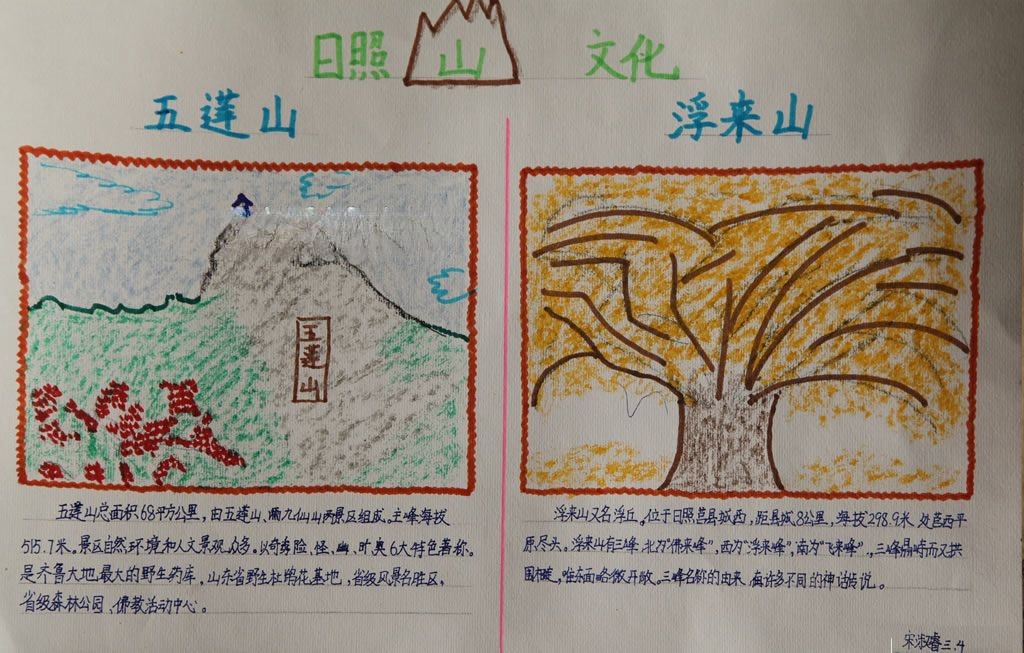 日照 山 文化
五莲山
浮来山
五莲山
五莲山总面积68平方公里，由五莲山、九仙山两景区组成。主峰海拔
515.7米。景区自然环境和人文景观众多。以奇秀险、怪、幽、旷奥6大特色著称。
是齐鲁大地最大的野生药库，山东省野生杜鹃花基地，省级风景名胜区，
省级森林公园、佛教活动中心。
浮来山又名浮丘。位于日照莒县城西，距县城8公里，海拔298.9米 处莒西平
原尽头。浮来山有三峰，北为“佛来峰”，西为“浮来峰”，南为“飞来峰”，三峰鼎峙而又拱
围相，唯东面略微开敞。三峰名称的由来 有许多不同的神话传说。
宋淑睿三.4